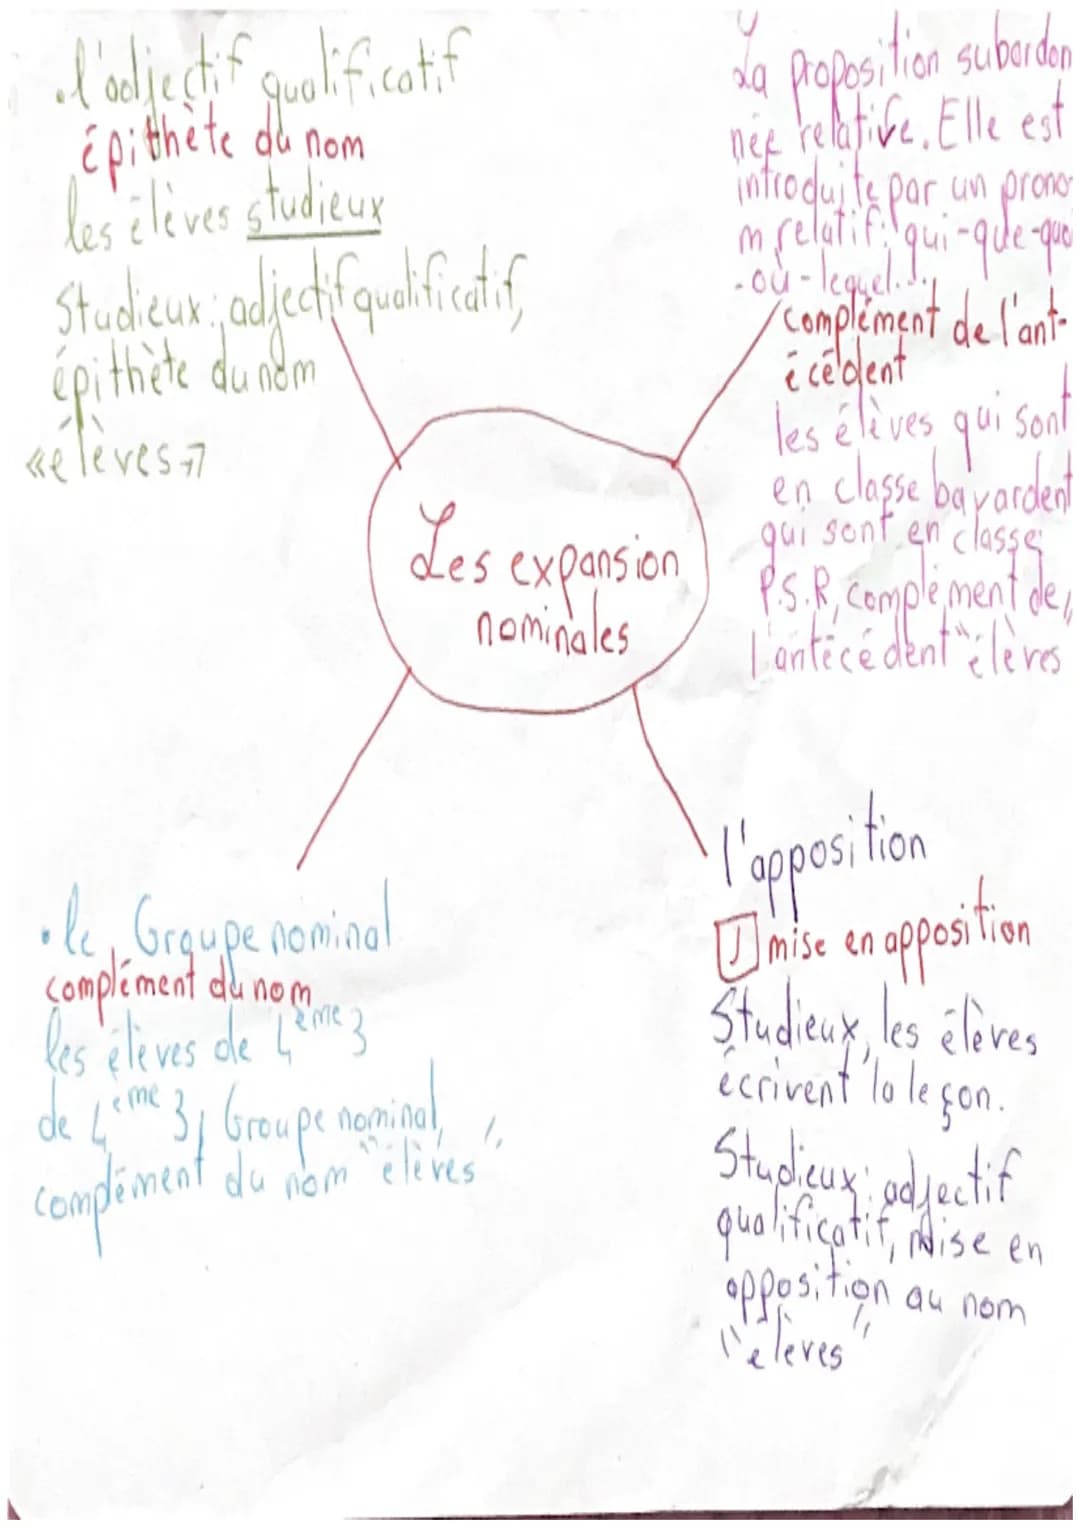 .l'adjectif qualificatif
épithète du nom
les élèves studieux
Studieux: adjectif qualificatif,
épithète du nom
«élèves»
La proposition subordon
née relative. Elle est
introduite par un prono
m relatif: qui-que-quoi
-où-lequel...
complément de l'ant-
écédent
les élèves qui sont
en classe bavardent
qui sont en classe:
P.S.R, complément de
l'antécédent "élèves
Les expansion
nominales
• le Groupe nominal
complément du nom
les élèves de 4ème 3
de 4ème 3, Groupe nominal,
complément du nom "élèves"
l'apposition
mise en apposition
Studieux, les élèves
écrivent la leçon.
Studieux: adjectif
qualificatif, Mise en
apposition au nom
"élèves"